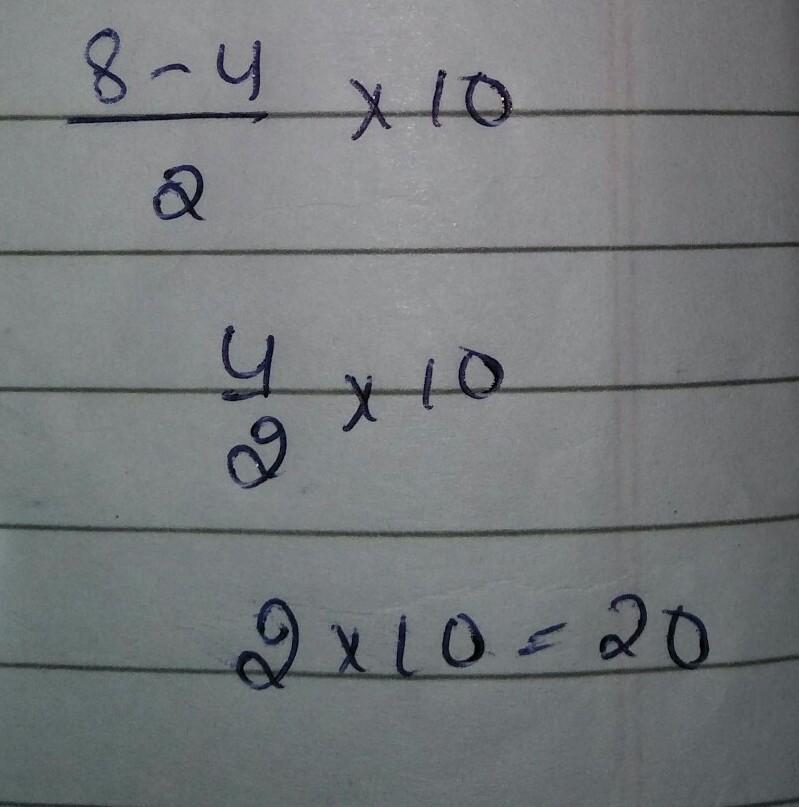 8-4
2 × 10
4
2 × 10
2 × 10 = 20